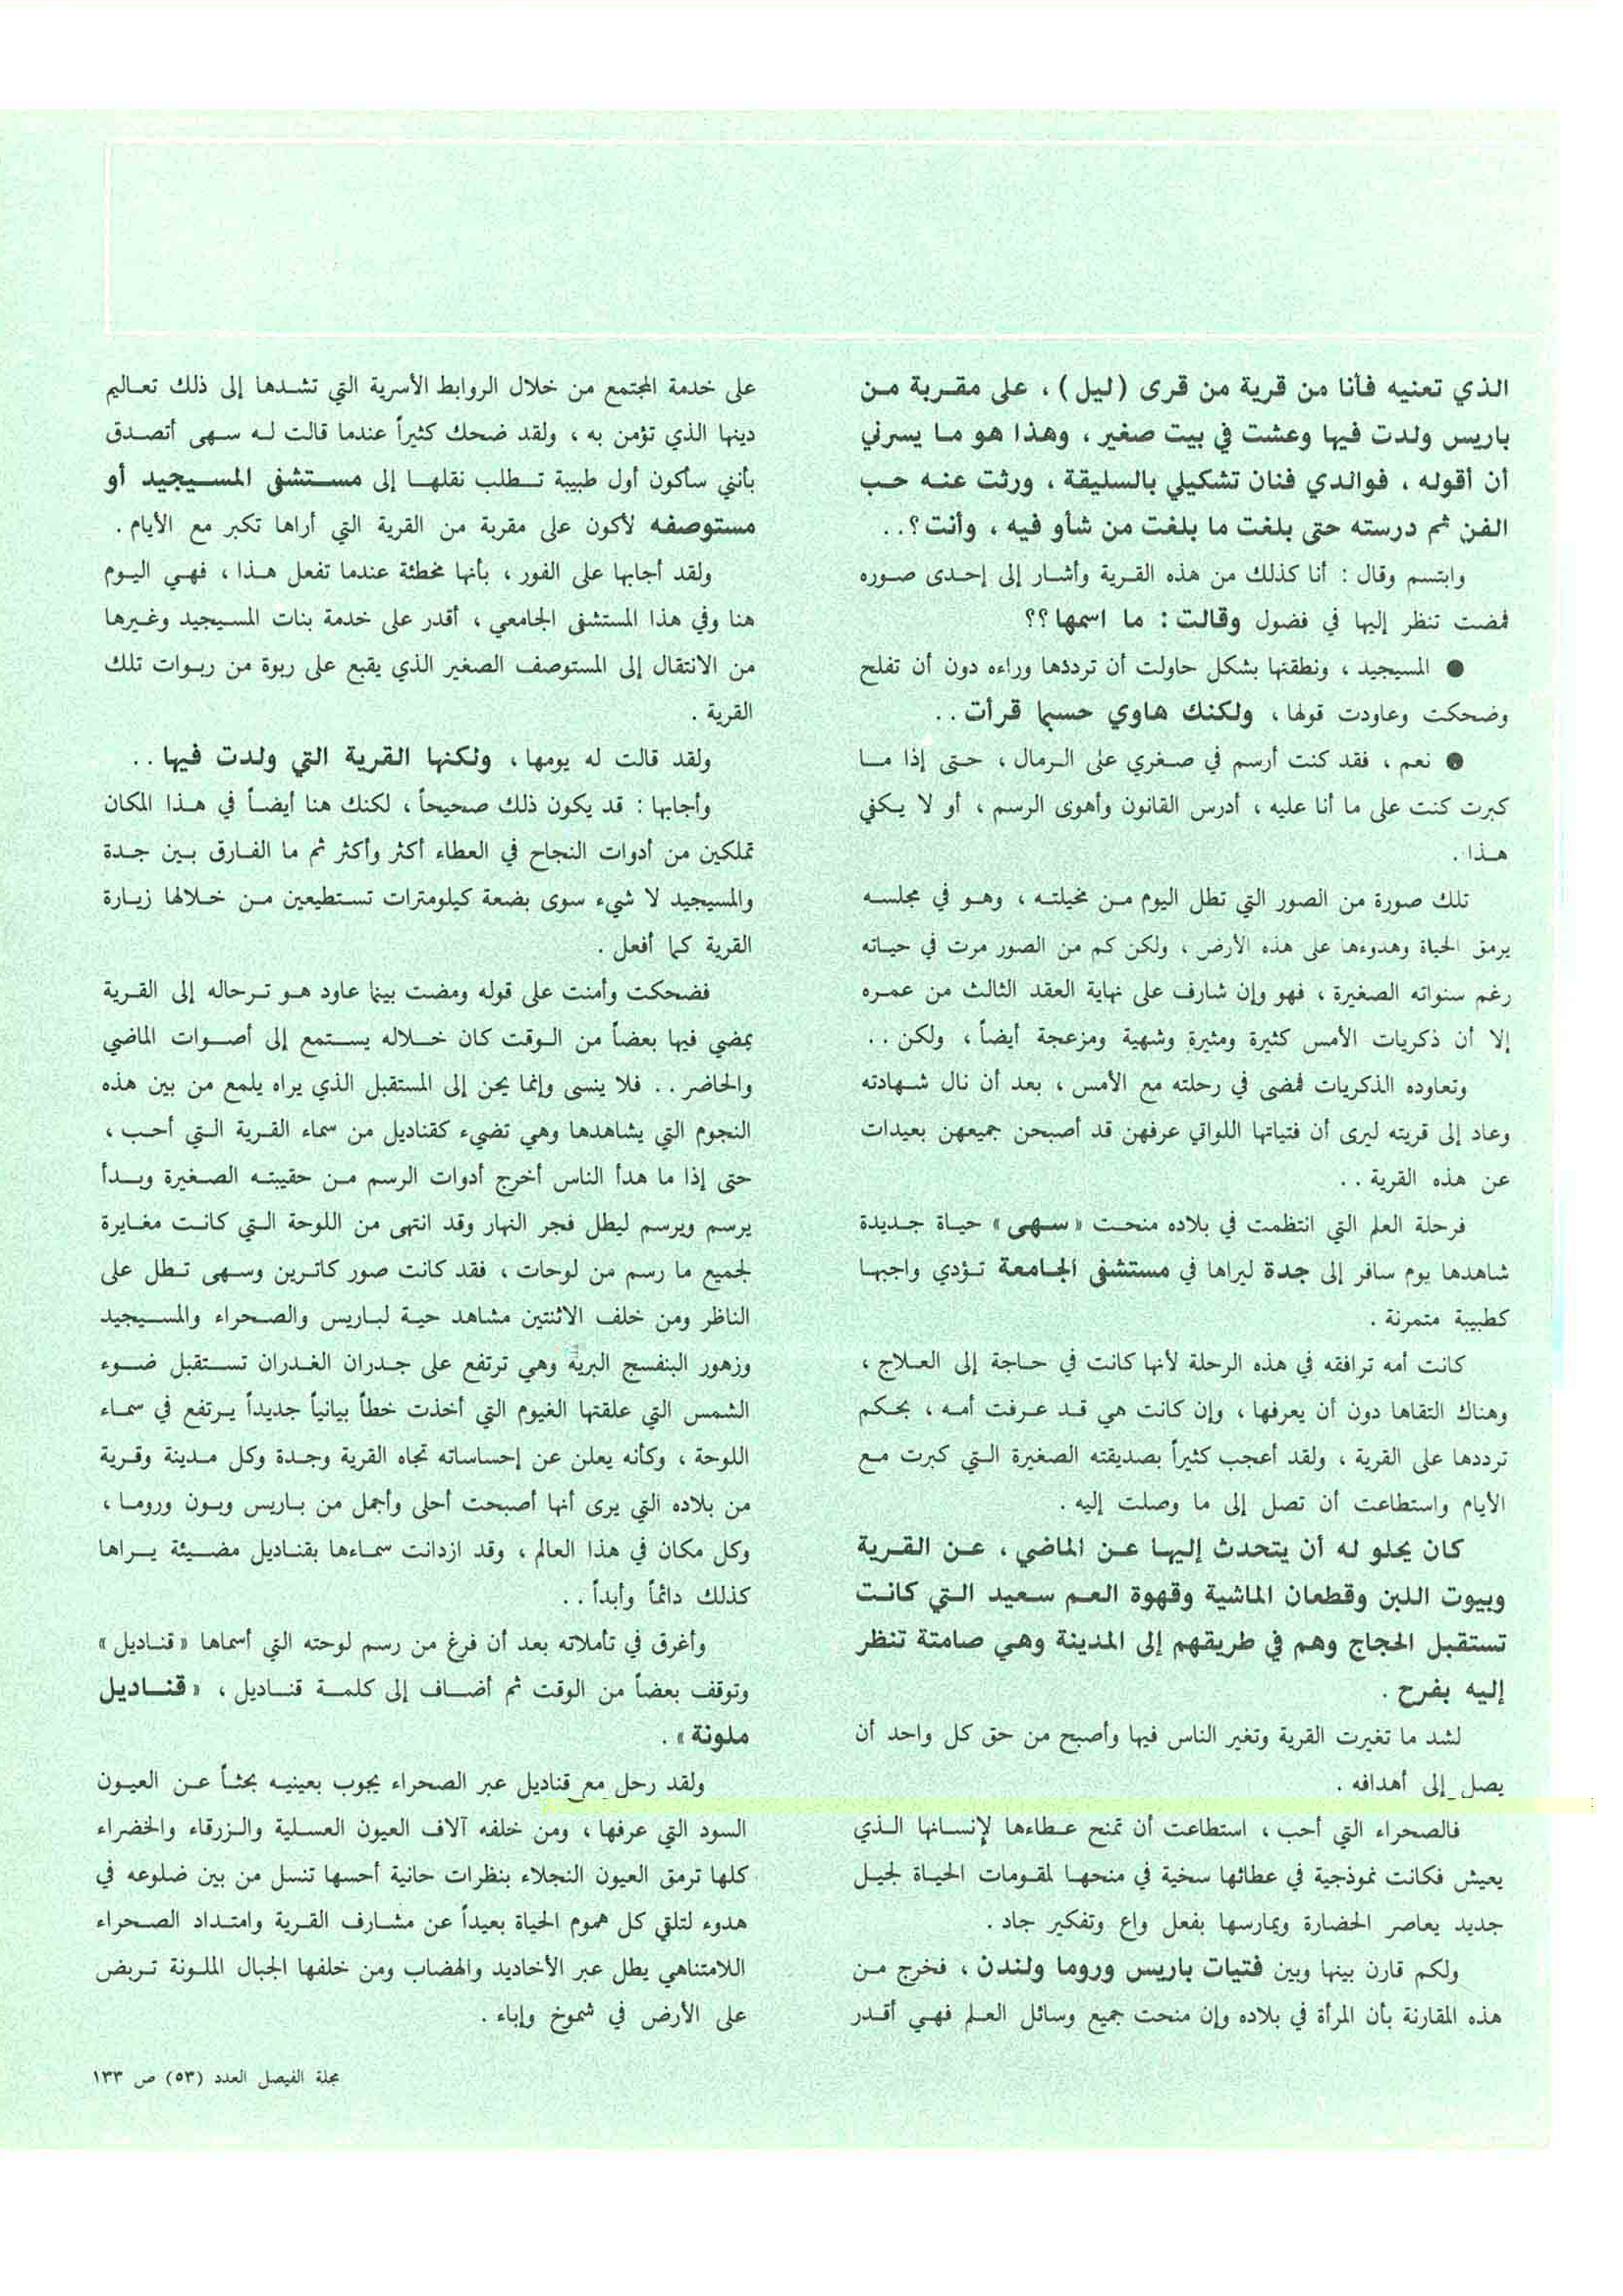 الذي تعنيه فأنا من قرية من قرى (ليل) ، على مقربة من
باريس ولدت فيها وعشت في بيت صغير ، وهذا هو ما يسرني
أن أقوله ، فوالدي فنان تشكيلي بالسليقة ، ورثت عنه حب
الفن ثم درسته حتى بلغت ما بلغت من شأو فيه ، وأنت ؟ . .
وابتسم وقال : أنا كذلك من هذه القرية وأشار إلى إحدى صوره
فمضت تنظر إليها في فضول وقالت : ما اسمها ؟؟
● المسيجيد ، ونطقتها بشكل حاولت أن ترددها وراءه دون أن تفلح
وضحكت وعاودت قولها ، ولكنك هاوي حسبما قرأت . .
● نعم ، فقد كنت أرسم في صغري على الرمال ، حتى إذا ما
كبرت كنت على ما أنا عليه ، أدرس القانون وأهوى الرسم ، أو لا يكفي
هذا .
تلك صورة من الصور التي تطل اليوم من مخيلته ، وهو في مجلسه
يرمق الحياة وهدوءها على هذه الأرض ، ولكن كم من الصور مرت في حياته
رغم سنواته الصغيرة ، فهو وإن شارف على نهاية العقد الثالث من عمره
إلا أن ذكريات الأمس كثيرة ومثيرة وشهية ومزعجة أيضاً ، ولكن . .
وتعاوده الذكريات فمضى في رحلته مع الأمس ، بعد أن نال شهادته
وعاد إلى قريته ليرى أن فتياتها اللواتي عرفهن قد أصبحن جميعهن بعيدات
عن هذه القرية . .
فرحلة العلم التي انتظمت في بلاده منحت « سهى » حياة جديدة
شاهدها يوم سافر إلى جدة ليراها في مستشفى الجامعة تؤدي واجبها
كطبيبة متمرنة .
كانت أمه ترافقه في هذه الرحلة لأنها كانت في حاجة إلى العلاج ،
وهناك التقاها دون أن يعرفها ، وإن كانت هي قد عرفت أمه ، بحكم
ترددها على القرية ، ولقد أعجب كثيراً بصديقته الصغيرة التي كبرت مع
الأيام واستطاعت أن تصل إلى ما وصلت إليه .
كان يحلو له أن يتحدث إليها عن الماضي ، عن القرية
وبيوت اللبن وقطعان الماشية وقهوة العم سعيد التي كانت
تستقبل الحجاج وهم في طريقهم إلى المدينة وهي صامتة تنظر
إليه بفرح .
لشد ما تغيرت القرية وتغير الناس فيها وأصبح من حق كل واحد أن
يصل إلى أهدافه .
فالصحراء التي أحب ، استطاعت أن تمنح عطاءها لإنسانها الذي
يعيش فكانت نموذجية في عطائها سخية في منحها لمقومات الحياة لجيل
جديد يعاصر الحضارة ويمارسها بفعل واع وتفكير جاد .
ولكم قارن بينها وبين فتيات باريس وروما ولندن ، فخرج من
هذه المقارنة بأن المرأة في بلاده وإن منحت جميع وسائل العلم فهي أقدر
على خدمة المجتمع من خلال الروابط الأسرية التي تشدها إلى ذلك تعاليم
دينها الذي تؤمن به ، ولقد ضحك كثيراً عندما قالت له سهى أتصدق
بأنني سأكون أول طبيبة تطلب نقلها إلى مستشفى المسيجيد أو
مستوصفه لأكون على مقربة من القرية التي أراها تكبر مع الأيام .
ولقد أجابها على الفور ، بأنها مخطئة عندما تفعل هذا ، فهي اليوم
هنا وفي هذا المستشفى الجامعي ، أقدر على خدمة بنات المسيجيد وغيرها
من الانتقال إلى المستوصف الصغير الذي يقبع على ربوة من ربوات تلك
القرية .
ولقد قالت له يومها ، ولكنها القرية التي ولدت فيها . .
وأجابها : قد يكون ذلك صحيحاً ، لكنك هنا أيضاً في هذا المكان
تملكين من أدوات النجاح في العطاء أكثر وأكثر ثم ما الفارق بين جدة
والمسيجيد لا شيء سوى بضعة كيلومترات تستطيعين من خلالها زيارة
القرية كما أفعل .
فضحكت وأمنت على قوله ومضت بينما عاود هو ترحاله إلى القرية
يمضي فيها بعضاً من الوقت كان خلاله يستمع إلى أصوات الماضي
والحاضر . . فلا ينسى وإنما يحن إلى المستقبل الذي يراه يلمع من بين هذه
النجوم التي يشاهدها وهي تضيء كقناديل من سماء القرية التي أحب ،
حتى إذا ما هدأ الناس أخرج أدوات الرسم من حقيبته الصغيرة وبدأ
يرسم ويرسم ليطل فجر النهار وقد انتهى من اللوحة التي كانت مغايرة
لجميع ما رسم من لوحات ، فقد كانت صور كاترين وسهى تطل على
الناظر ومن خلف الاثنتين مشاهد حية لباريس والصحراء والمسيجيد
وزهور البنفسج البرية وهي ترتفع على جدران الغدران تستقبل ضوء
الشمس التي علقتها الغيوم التي أخذت خطاً بيانياً جديداً يرتفع في سماء
اللوحة ، وكأنه يعلن عن إحساساته تجاه القرية وجدة وكل مدينة وقرية
من بلاده التي يرى أنها أصبحت أحلى وأجمل من باريس وبون وروما ،
وكل مكان في هذا العالم ، وقد ازدانت سماءها بقناديل مضيئة يراها
كذلك دائماً وأبداً . .
وأغرق في تأملاته بعد أن فرغ من رسم لوحته التي أسماها « قناديل »
وتوقف بعضاً من الوقت ثم أضاف إلى كلمة قناديل ، « قناديل
ملونة » .
ولقد رحل مع قناديل عبر الصحراء يجوب بعينيه بحثاً عن العيون
السود التي عرفها ، ومن خلفه آلاف العيون العسلية والزرقاء والخضراء
كلها ترمق العيون النجلاء بنظرات حانية أحسها تنسل من بين ضلوعه في
هدوء لتلقي كل هموم الحياة بعيداً عن مشارف القرية وامتداد الصحراء
اللامتناهي يطل عبر الأخاديد والهضاب ومن خلفها الجبال الملونة تربض
على الأرض في شموخ وإباء .
مجلة الفيصل العدد (٥٣) ص ١٣٣